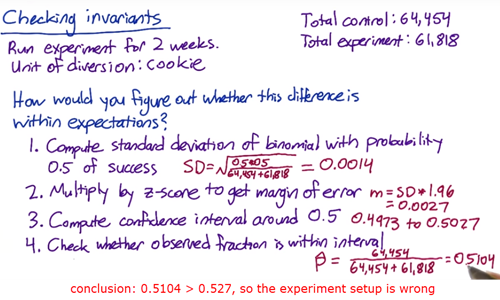 Checking invariants
Total control: 64,454
Run experiment for 2 weeks.
Total experiment: 61,818
Unit of diversion: cookie
How would you figure out whether this difference is
within expectations?
1. Compute standard deviation of binomial with probability
0.5 of success SD=√0.5*0.5/64,454+61,818 = 0.0014
2. Multiply by z-score to get margin of error m=SD*1.96
=0.0027
3. Compute confidence interval around 0.5 0.4973 to 0.5027
4. Check whether observed fraction is within interval
p̂ = 64,454/64,454+61,818 = 0.5104
conclusion: 0.5104 > 0.527, so the experiment setup is wrong